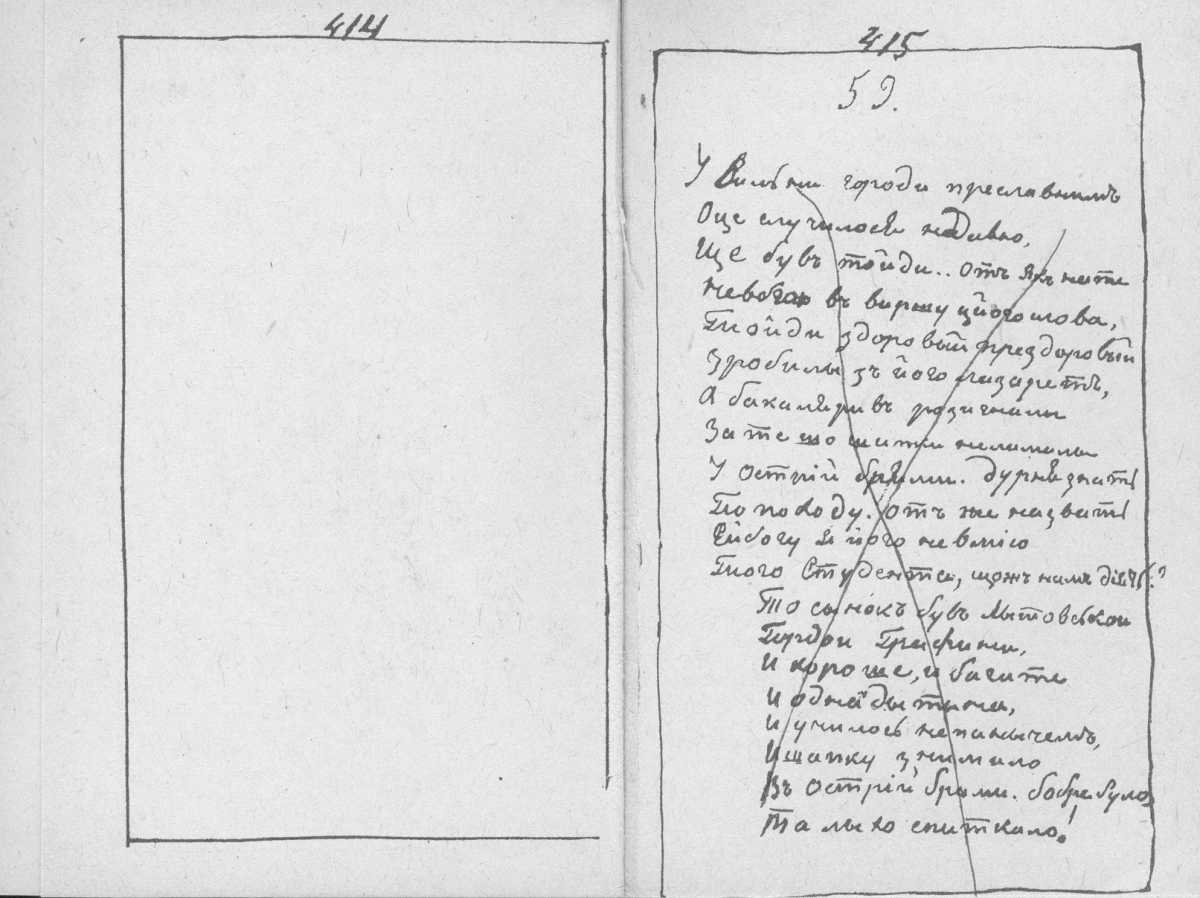 414
415
59.
У Вильни городи преславнимъ
Оце случилося недавно,
Ще бувъ тойди.. отъ якъ на те
въ виршу цёго слова,
Тойди здоровый прездоровый
Зробилы зъ його лазаретъ,
А бакалярівъ розигналы
За те що шапки неламалы
У острій брами. Дурня знать
По походу. отъ же назвать
Ейбогу я його невмію
Того Студента, щожъ намъ діять?
То сынокъ бувъ Лытовськои
Гордои Графини,
И хороше, и багате
И одна дытына,
И училось непанычемъ,
И шапку знимало
Въ острій брами. Добре було,
Та лыхо спиткало!